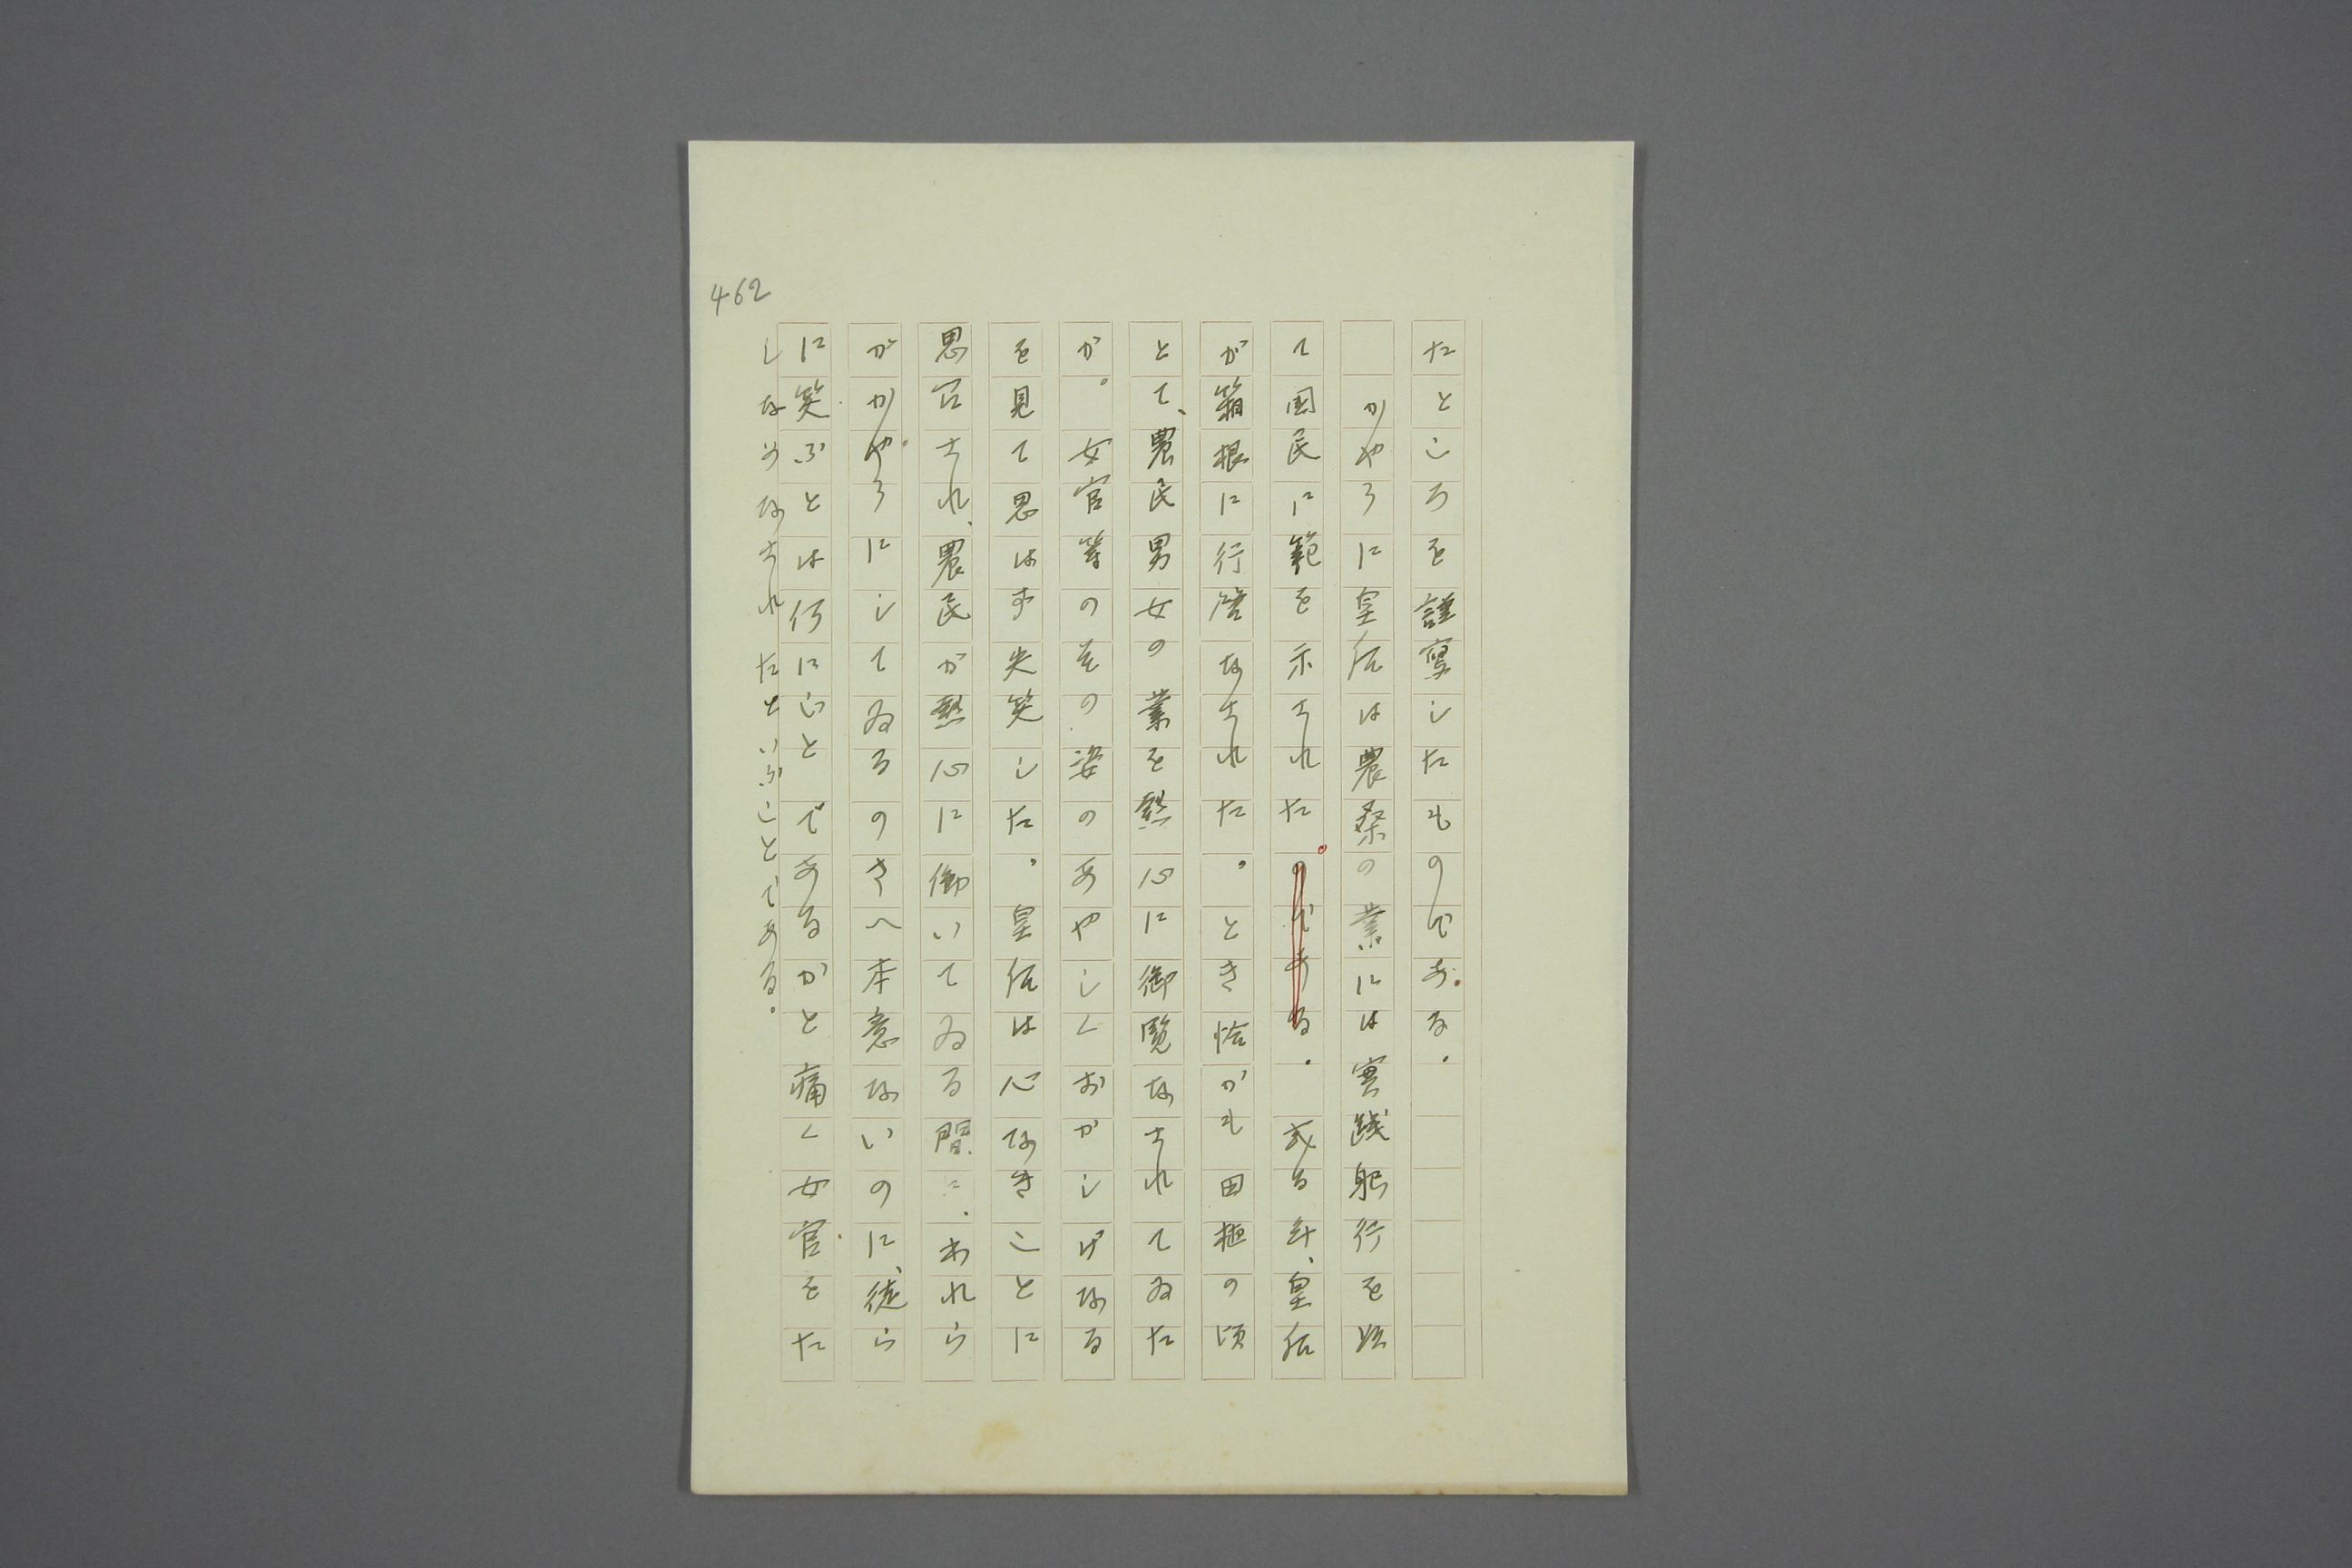 462
たところを謹写したものである。
かやうに皇后は農桑の業には実践躬行を以
て国民に範を示された。のである。或る年、皇后
が箱根に行啓なされた。とき恰かも田植の頃
とて、農民男女の業を熱心に御覧なされてゐた
が。女官等のその姿のあやしくおかしげなる
を見て思はず失笑した。皇后は心なきことに
思召され、農民が熱心に働いてゐる間に、われら
がかやうにしてゐるのさへ本意ないのに、徒ら
に笑ふとは何にごとであるかと痛く女官をた
しなめなされたといふことである。